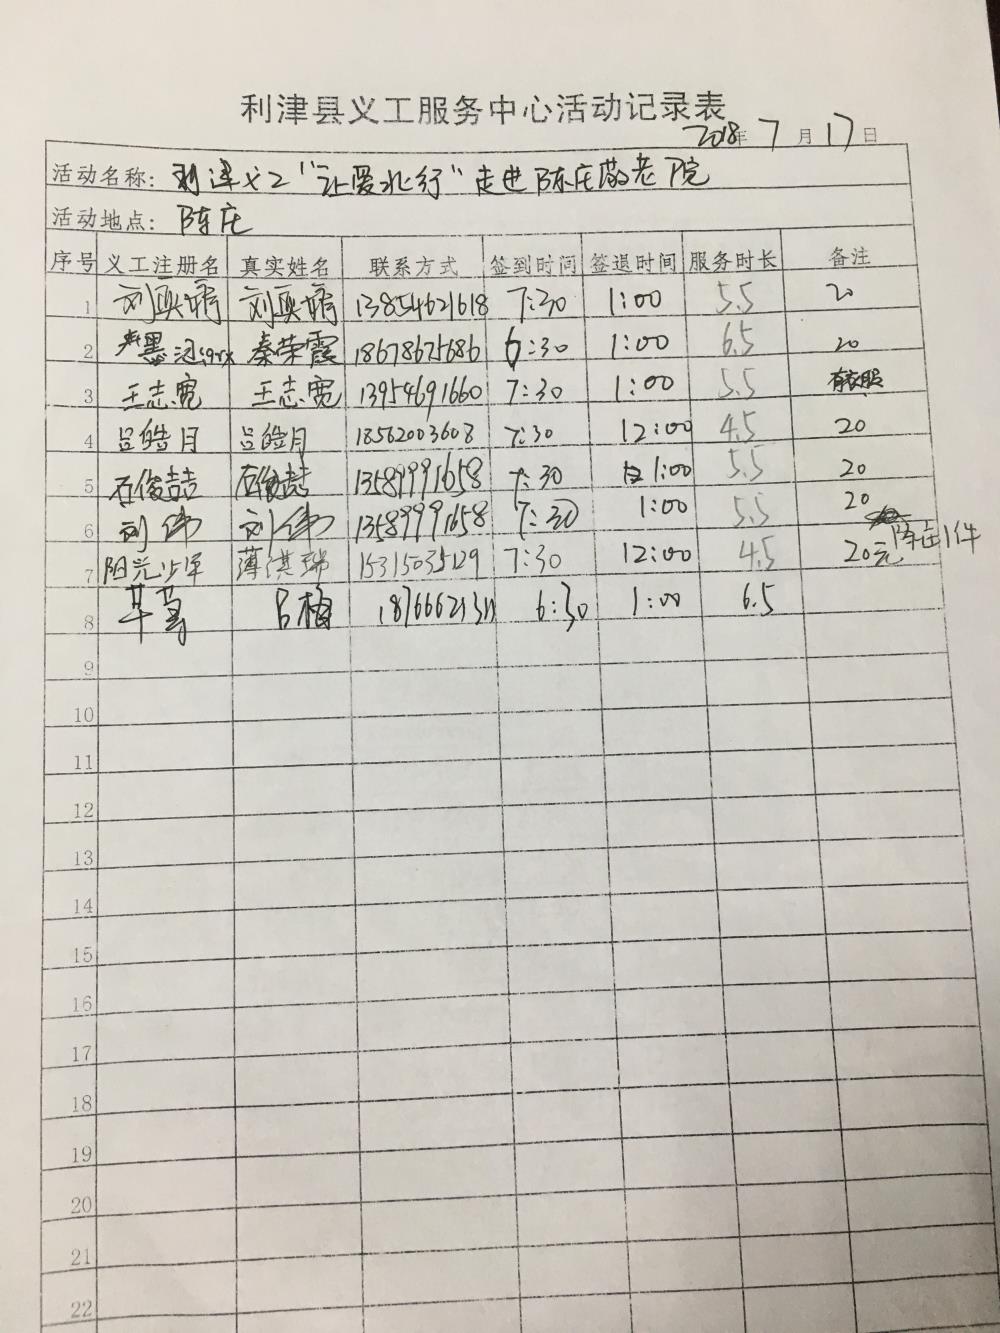 利津县义工服务中心活动记录表
2018年 7 月 17 日
活动名称: 利津义工"让爱北行"走进陈庄敬老院
活动地点: 陈庄
序号 义工注册名 真实姓名 联系方式 签到时间 签退时间 服务时长 备注
1 13854621618 7:30 1:00 5.5 20
2 秦荣霞 18678675686 6:30 1:00 6.5 20
3 王志宽 王志宽 13954691660 7:30 1:00 5.5 有衣服
4 吕皓月 吕皓月 18562003608 7:30 12:00 4.5 20
5 石俊喆 石俊喆 13589991658 7:30 1:00 5.5 20
6 刘伟 刘伟 13589991658 7:30 1:00 5.5 20
7 阳光少年 薄淇瑞 15315035129 7:30 12:00 4.5 20元 陈庄1件
8 吕梅 6:30 1:00 6.5
9
10
11
12
13
14
15
16
17
18
19
20
21
22